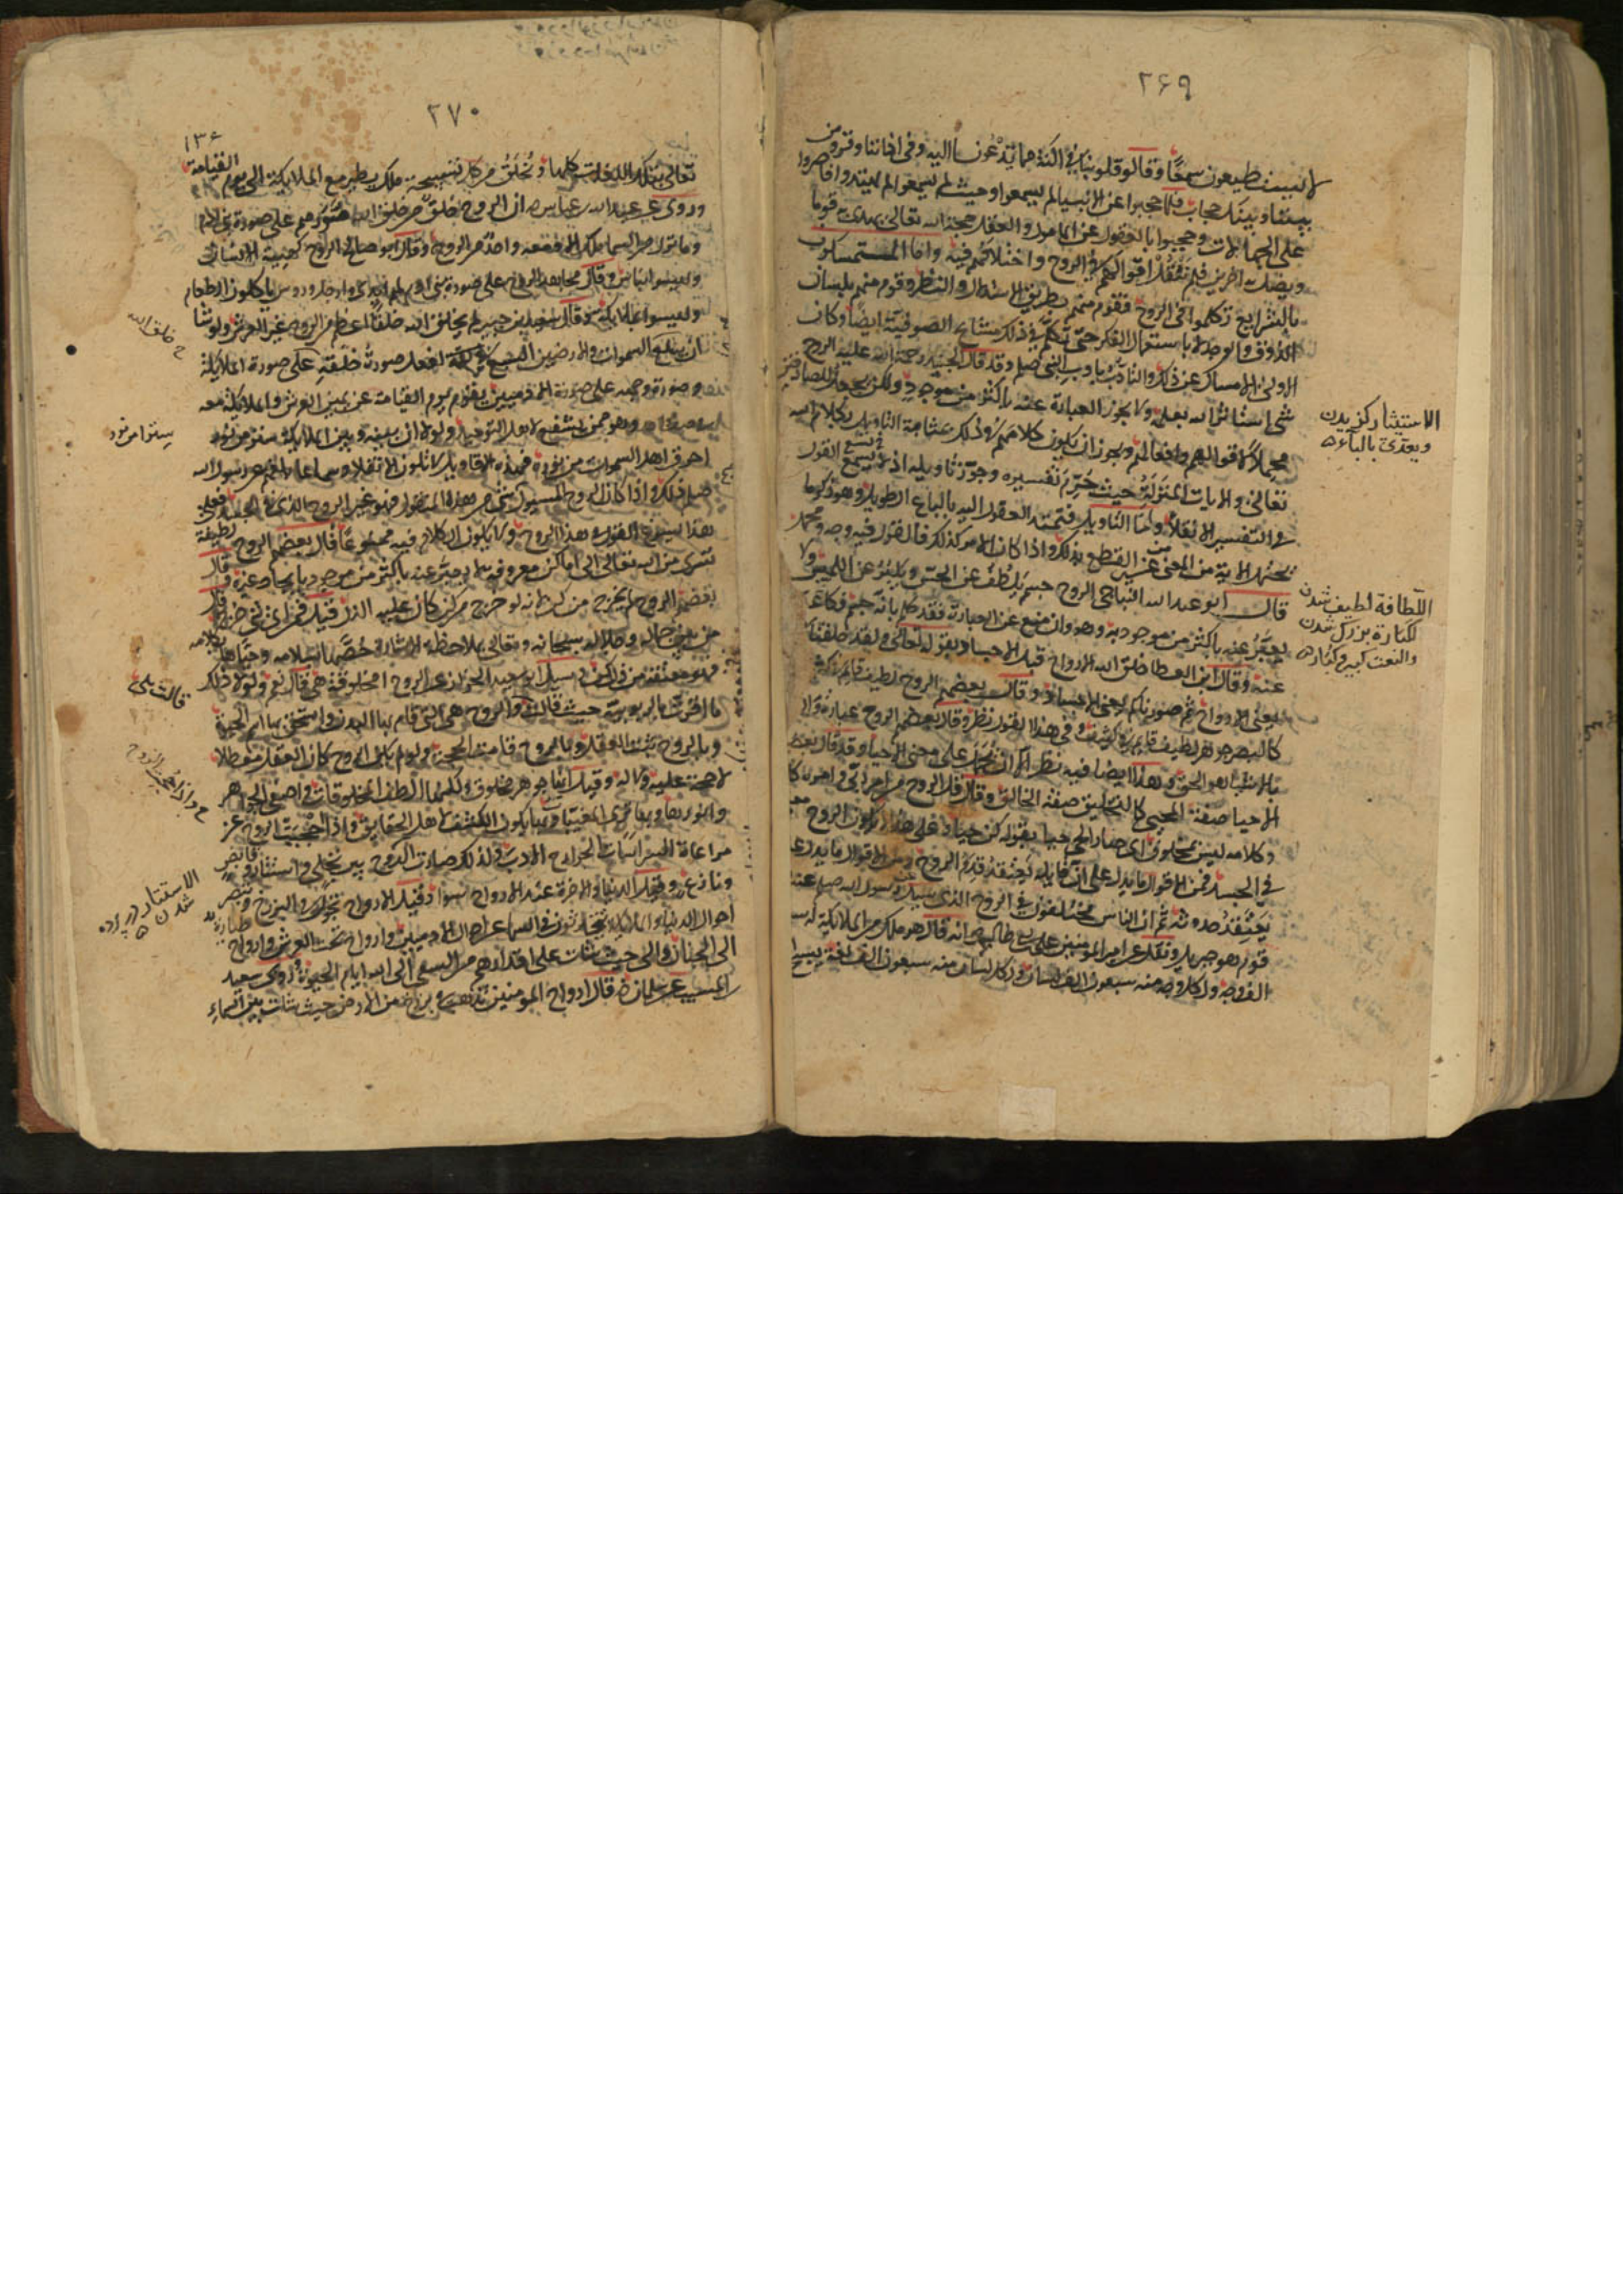 ۲۶۹
لا يستطيعون سمعا وقالوا قلوبنا في اكنة مما تدعونا اليه وفي اذاننا وقر ومن
بيننا وبينك حجاب فلما حجبوا عن الانبياء لم يسمعوا وحيث لم يسمعوا لم يهتدوا فاصروا
على الجهالات وحجبوا بالعقول عن المامول والعقل حجة الله تعالى يهدى به قوما
ويضل به اخرين فلم ننقل اقوالهم في الروح واختلافهم فيه واما المستمسكون
بالشرايع تكلموا في الروح فقوم منهم بطريق الاستدلال والنظر وقوم منهم بلسان
الذوق والوجد لا باستعمال الفكر حتى تكلم في ذلك مشايخ الصوفية ايضا وكان
الاولى الامساك عن ذلك والتادب بادب النبي صلعم وقد قال الجنيد رحمة الله عليه الروح
شئ استاثر الله بعلمه ولا يجوز العبارة عنه باكثر من موجود ولكن نجعل للصادقين
محملا لاقوالهم وافعالهم ويجوز ان يكون كلامهم في ذلك بمثابة التاويل لكلام الله
تعالى والايات المنزلة حيث حرم تفسيره وجوز تاويله اذ لا يسع القول
في التفسير الا نقلا واما التاويل فتمتد العقول اليه بالباع الطويل وهو ذكر ما
تحتمل الاية من المعنى من غير القطع بذلك واذا كان الامر كذلك فللقول فيه وجه ومحمل
قال ابو عبد الله النباجي الروح جسم يلطف عن الحس ويكبر عن اللمس ولا
يعبر عنه باكثر من موجود به وهو وان منع عن العبارة فقد حكم بانه جسم فكانه عبر
عنه وقال ابن العطا خلق الله الارواح قبل الاجساد بقوله تعالى ولقد خلقناكم
يعنى الارواح ثم صورناكم يعنى الاجساد وقال بعضهم الروح لطيف قائم في كثيف
كالبصر جوهر لطيف قايم في كثيف وفي هذا القول نظر وقال بعضهم الروح عبارة والقائم
بالاشياء هو الحق وهذا ايضا فيه نظر الا ان يحمل على معنى الاحياء وقد قال بعضهم
الاحيا صفة المحيى كالتخليق صفة الخالق وقال قل الروح من امر ربي وامره كلامه
وكلامه ليس بمخلوق اى صار الحي حيا بقوله كن حيا وعلى هذا لا يكون الروح معنى
في الجسد فمن الاقوال ما يدل على ان قايله يعتقد قدم الروح ومن الاقوال ما يدل على
يعتقد حدوثه ثم ان الناس مختلفون في الروح الذى سئل رسول الله صلعم عنه
قوم هو جبريل ونقل عن امير المومنين على بن ابى طالب رضه انه قال هو ملك من الملايكة له سبعون
الف وجه ولكل وجه منه سبعون الف لسان ولكل لسان منه سبعون الف لغة يسبح
الاستيثار كزيدن
ويعدى بالباء
اللطافة لطيف شدن
الكبارة بزرك شدن
والنعت كبير وكبار
۲۷۰
۱۳۶
تعالى بتلك اللغات كلها ويخلق من كل تسبيحة ملك يطير مع الملايكة الى يوم القيامة
وروى عن عبد الله بن عباس رضه ان الروح خلق من خلق الله صورهم على صورة بنى ادم
وما نزل من السماء ملك الا ومعه واحد من الروح وقال ابو صالح الروح كهيئة الانسان
وليسوا بناس وقال مجاهد الروح على صورة بنى ادم لهم ايدى وارجل وروس ياكلون الطعام
وليسوا بملايكة وقال سعيد بن جبير لم يخلق الله خلقا اعظم من الروح غير العرش ولو شا
ان يبلع السموات والارضين السبع في لقمة لفعل صورة خلقه على صورة الملايكة
وصورة وجهه على صورة الادميين يقوم يوم القيامة عن يمين العرش والملايكة معه
وهو ممن يشفع لاهل التوحيد ولولا ان بينه وبين الملايكة سترا من نور
احرق اهل السموات من نوره فهذه الاقاويل لا تكون الا نقلا وسماعا بلغهم عن رسول الله
صلعم ذلك واذا كان الروح المسؤول عنه من هذا المنقول فهو غير الروح الذى في الجسد فعلى
هذا يسوغ القول في هذا الروح ولا يكون الكلام فيه ممنوعا قال بعضهم الروح لطيفة
تسرى من الله تعالى الى اماكن معروفة لا يعبر عنه باكثر من موجود بايجاد غيره وقال
بعضهم الروح لم يخرج من كن لانه لو خرج من كن كان عليه الذل قيل فمن اى شئ خرج قال
من بين جماله وجلاله سبحانه وتعالى بملاحظة الاشارة خصها بسلامه وحياها بكلامه
فهى معتقة من ذل كن وسئل ابو سعيد الخراز عن الروح امخلوقة هي قال نعم ولولا ذلك
ما اقرت بالربوبية حيث قالت بلى والروح هى التى قام بها البدن واستحق بها اسم الحيوة
وبالروح ثبت العقل وبالروح قامت الحجة ولو لم يكن الروح كان العقل معطلا
لا حجة عليه ولا له وقيل انها جوهر مخلوق ولكنها الطف المخلوقات واصفى الجواهر
وانورها وبها تترى المغيبات وبها يكون الكشف لاهل الحقايق واذا حجبت الروح عن
مراعاة السر اسات الجوارح الادب ولذلك صارت الروح بين تجلى واستتار وقابض
ونازع وقيل الدنيا والاخرة عند الارواح سوا وقيل الارواح تجول في البرزخ وتبصر
احوال الدنيا والملايكة يتحدثون في السماء عن احوال الادميين وارواح تحت العرش وارواح طيارة
الى الجنان والى حيث شات على اقدارهم من السعى الى الله ايام الحيوة روى سعيد
بن المسيب عن سلمان رضه قال ارواح المومنين تذهب في برزخ من الارض حيث شات بين السماء
خ خلق الله
ستر من نور
قالت بلى
خ واذا حجبت الروح
الاستتار در پرده
شدن